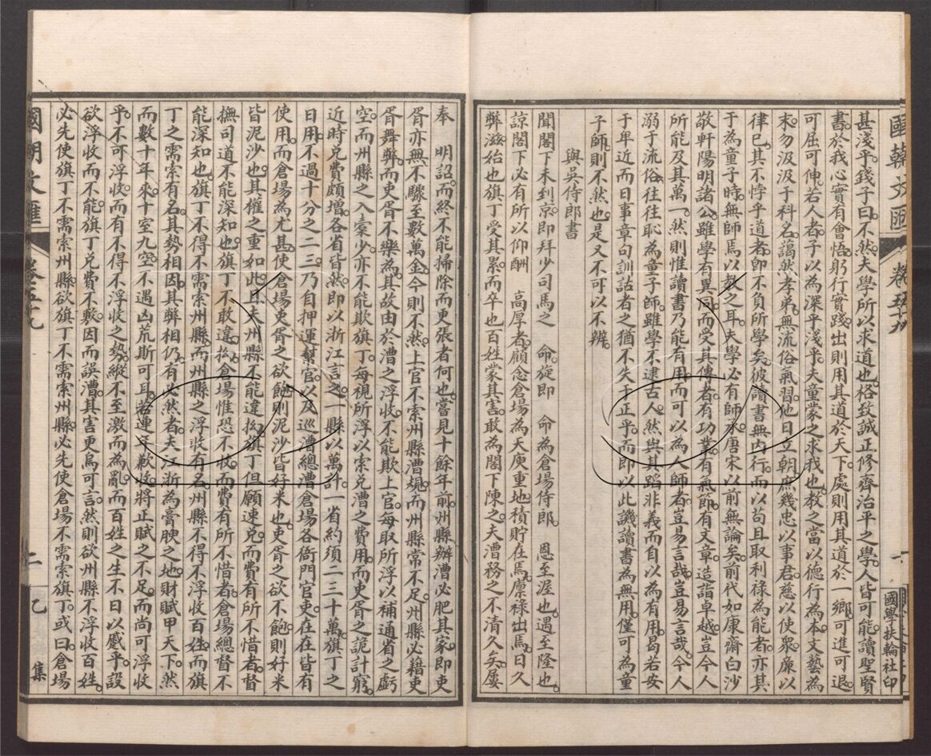 國朝文匯 卷五十九 一
國學扶輪社印
甚淺乎錢子曰不然夫學所以求道也格致誠正修齊治平之學人皆可能讀聖賢
書於我心實有會悟躬行實踐出則用其道於天下處則用其道於一鄉可進可退
可屈可伸若人者子以為深乎淺乎夫童蒙之求我也教之當以德行為本文藝為
末勿汲汲于科名藹然孝弟無流俗氣習他日立朝庶幾忠以事君慈以使衆廉以
律己其不悖乎道者卽不負所學矣彼讀書無內行而以苟且取利祿為能者亦其
于為童子時無師焉以教之耳夫學必有師承唐宋以前無論矣前代如康齋白沙
敬軒陽明諸公雖學有異同而受其傳者有功業有氣節有文章造詣卓越豈今人
所能及其萬一然則惟讀書乃能有用而可以為人師者豈易言哉豈易言哉今人
溺于流俗往往恥為童子師雖學不逮古人然與其蹈非義而自以為有用曷若安
于卑近而日事章句訓詁者之猶不失于正乎而即以此譏讀書為無用僅可為童
子師則不然也是又不可以不辨
與吳侍郎書
聞閣下未到京即拜少司馬之 命旋即 命為倉場侍郎 恩至渥也遇至隆也
諒閣下必有所以仰酬 高厚者顧念倉場為天庾重地積貯在焉禀祿出焉日久
弊滋始也旗丁受其累而卒也百姓蒙其害敢為閣下陳之夫漕務之不清久矣屢
奉 明詔而終不能掃除而更張者何也嘗見十餘年前州縣辦漕必肥其家即吏
胥亦無不驟至數萬金今則不然上官不索州縣漕規而州縣常不足州縣必藉吏
胥舞弊而吏胥不樂為其故由於漕之浮收不能欺上官每取所浮以補通省之虧
空而州縣之入橐少亦不能欺旗丁每視所浮以索兌漕之費用而吏胥之詭計窮
近時兌費頗增各省皆然即以浙江言之一縣以萬計一省約須二三十萬旗丁之
日用不過十分之二三乃自押運幫官以及巡漕總漕倉場各衙門官吏在在皆有
使用而倉場為尤甚使倉場吏胥之欲飽則泥沙皆好米也吏胥之欲不飽則好米
皆泥沙也其權之重如此且夫州縣不能違拗旗丁但願速兌而費有所不惜者督
撫司道不能深知也旗丁不敢違拗倉場惟恐不收而費有所不惜者倉場總督不
能深知也旗丁不得不需索州縣而州縣之浮收有名州縣不得不浮收百姓而旗
丁之需索有名其勢相因其弊相仍有必然者夫江浙為膏腴之地財賦甲天下然
而數十年來十室九空不遇凶荒斯可耳若連年歉收將正賦之不足而尚可浮收
乎不可浮收而有不得不浮收之勢縱不至激而為亂而百姓之生不日以慼乎設
欲浮收而不能旗丁兌費不敷因而誤漕其害更烏可言然則欲州縣不浮收百姓
必先使旗丁不需索州縣欲旗丁不需索州縣必先使倉場不需索旗丁或曰倉場
國朝文匯 卷五十九 二 乙集